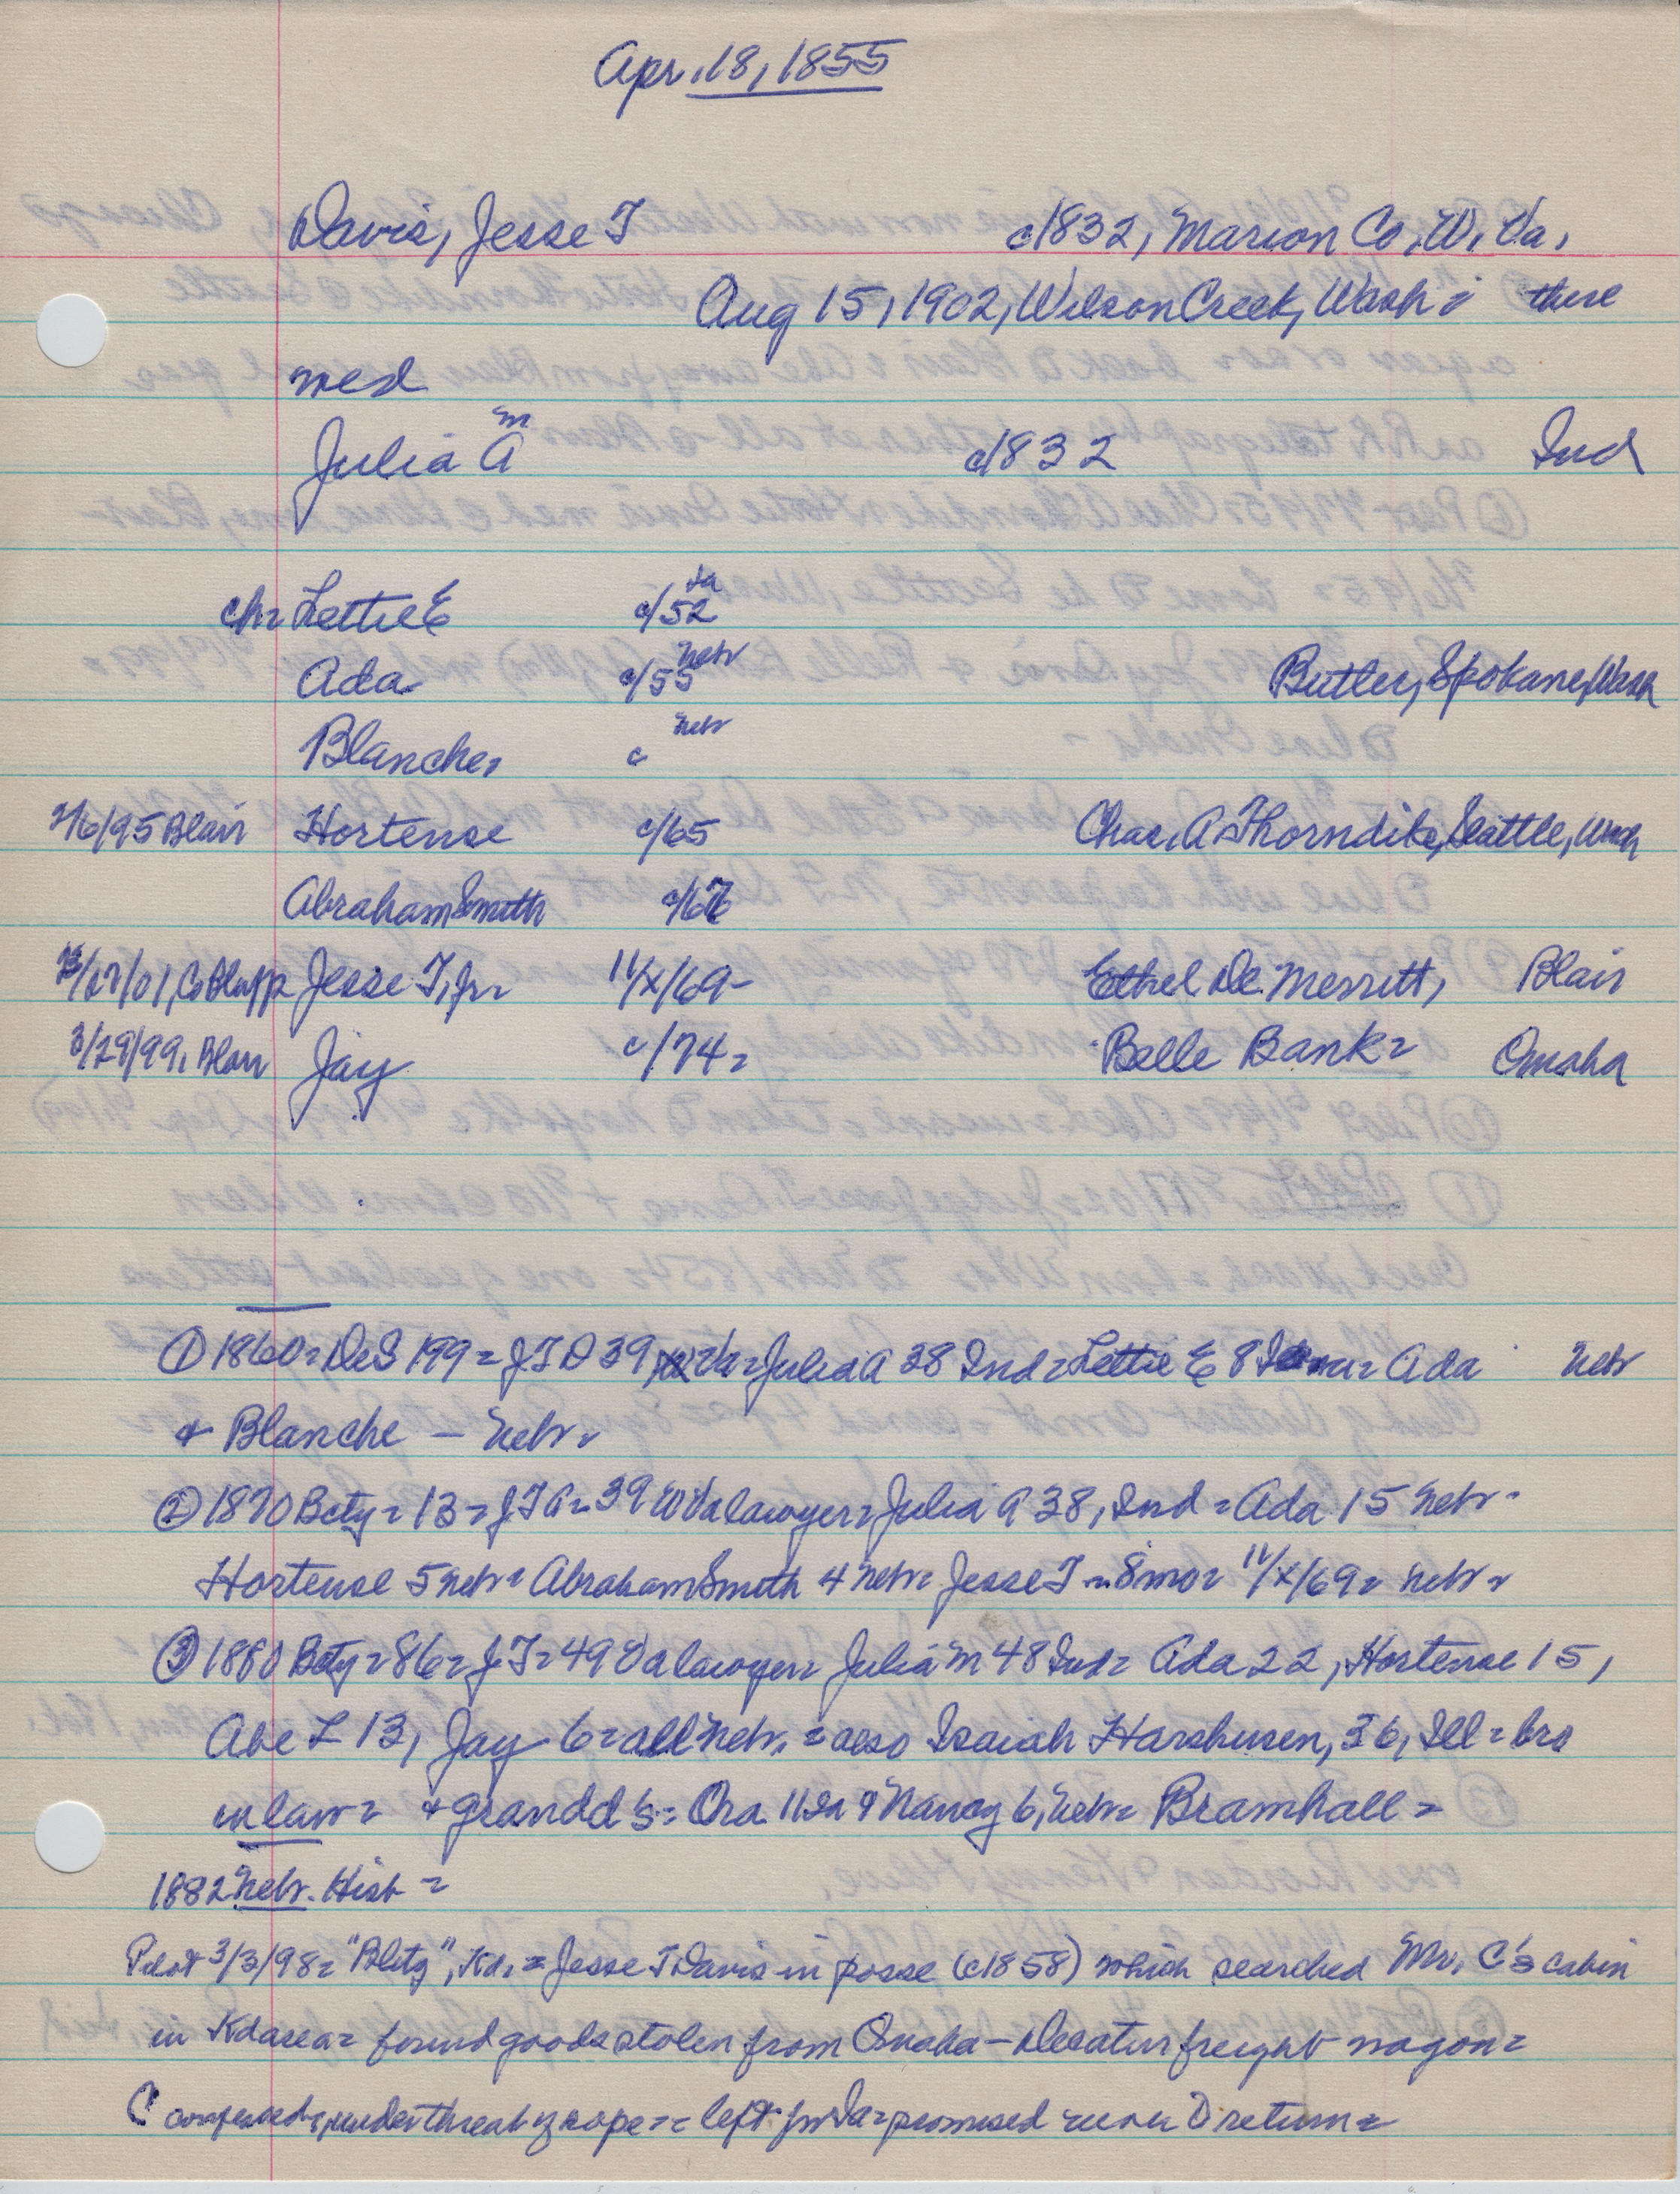 Apr. 18, 1855
Davis, Jesse T c1832, Marion Co, W. Va,
Aug 15, 1902, Wilson Creek, Wash = there
med
Julia A m c1832 Ind
chr Lettie E c/52 Ia
Ada c/55 Nebr Butler, Spokane, Wash
Blanche, c Nebr
7/6/95 Blair Hortense c/65 Chas. A Thorndike, Seattle, Wash
Abraham Smith c/67
/27/01, Jesse T, Jr = 11/x/69- Ethel De Merritt, Blair
3/29/99, Blair Jay c/74= Belle Bank= Omaha
① 1860= DeS 199= J T D 39 Va= Julia A 28 Ind= Lettie E 8 Ada Nebr
& Blanche — Nebr=
② 1870 Bcty= 13= J T A= 39 W Va lawyer= Julia A 38, Ind= Ada 15 Nebr-
Hortense 5 Nebr= Abraham Smith 4 Nebr= Jesse T = 8mo= 11/x/69= Nebr=
③ 1880 Bcty= 86= J T= 49 Va lawyer= Julia M 48 Ind= Ada 22, Hortense 15,
Abe L 13, Jay 6= all Nebr. = also Isaiah Harshusen, 36, Ill= bro
in law= & grandd's= Ora 11 Ia & Nancy 6, Nebr= Bramhall=
1882 Nebr. Hist=
Pilot 3/3/98= "Blitz", Kd. = Jesse T Davis in posse (c1858) which searched Mr. C's cabin
in Kd area= found goods stolen from Omaha-Decatur freight wagon=
C confessed, under threat of rope= left for Ia= promised never to return=